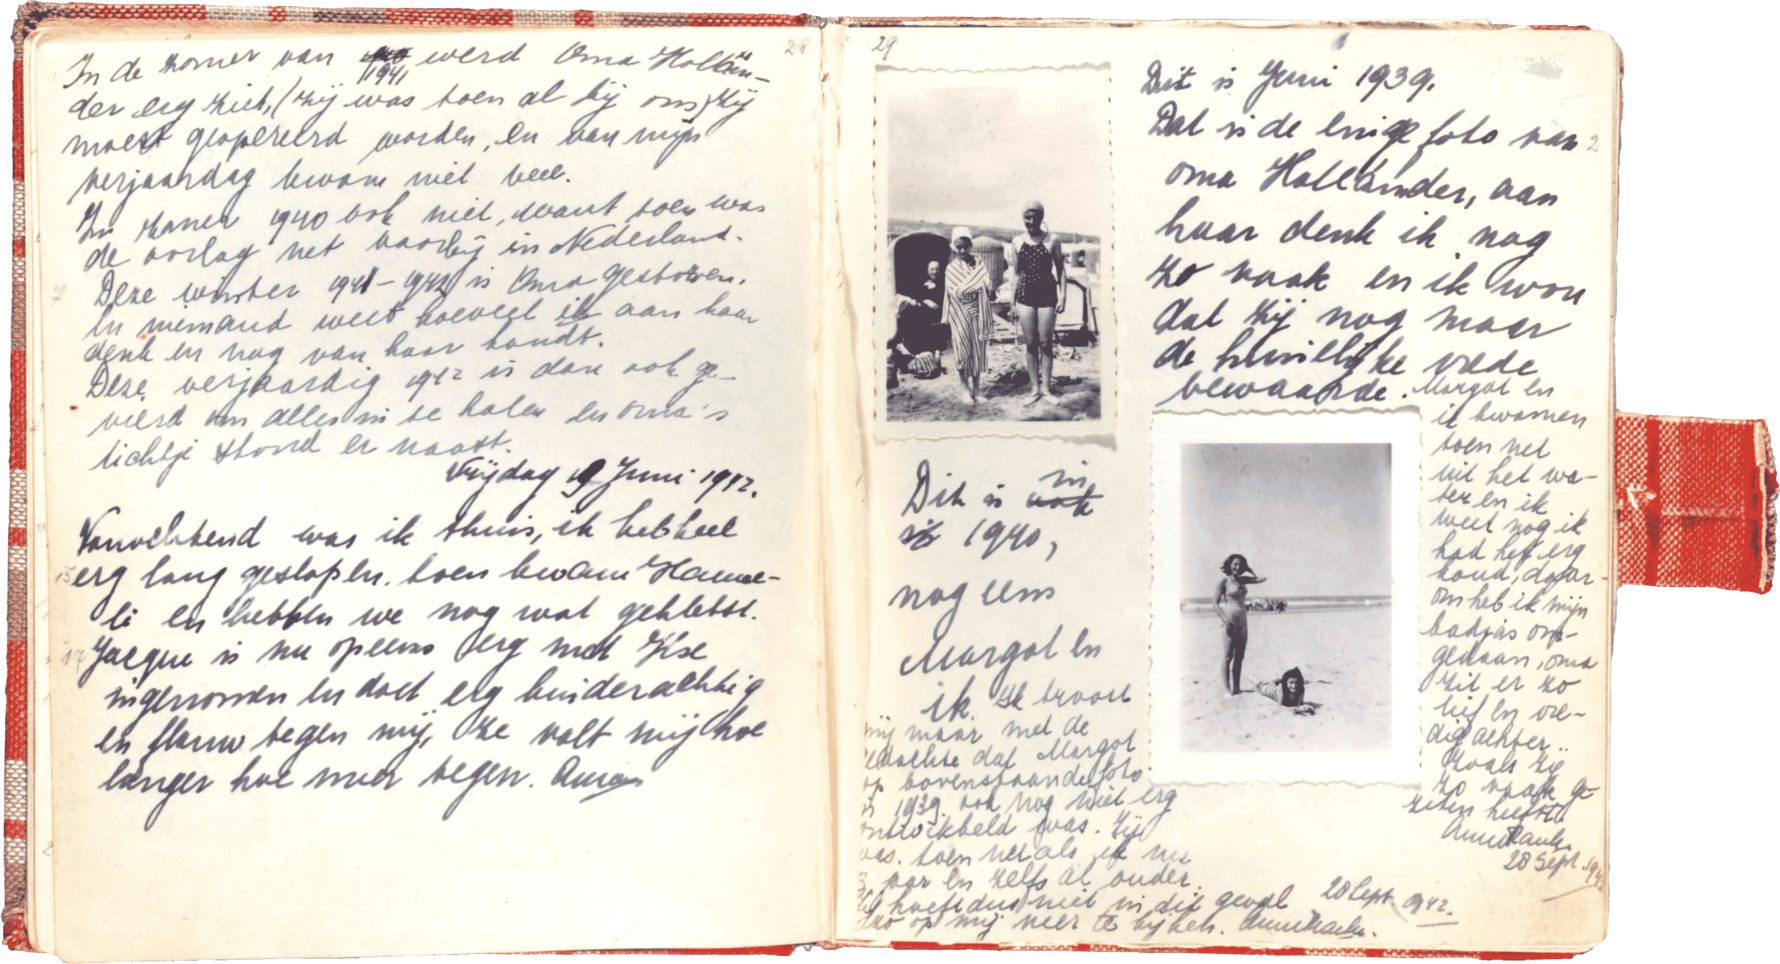 28
In de zomer van 1941 werd Oma Hollän-
der erg ziek, (zij was toen al bij ons) zij
moest geopereerd worden, en van mijn
verjaardag kwam niet veel.
In zomer 1940 ook niet, want toen was
de oorlog net voorbij in Nederland.
Deze winter 1941-1942 is Oma gestorven.
En niemand weet hoeveel ik aan haar
denk en nog van haar houdt.
Deze verjaardag 1942 is dan ook ge-
vierd om alles in te halen en oma's
lichtje stond er naast.
Vrijdag 19 Juni 1942.
Vanochtend was ik thuis, ik heb heel
erg lang geslapen, toen kwam Hanne-
li en hebben we nog wat gekletst.
Jacque is nu opeens erg met Ilse
ingenomen en doet erg kinderachtig
en flauw tegen mij, ze valt mij hoe
langer hoe meer tegen. Anne
29
Dit is Juni 1939.
Dat is de enige foto van
oma Holländer, aan
haar denk ik nog
zo vaak en ik wou
dat zij nog maar
de huiselijke vrede
bewaarde. Margot en
ik kwamen
toen net
uit het wa-
ter en ik
weet nog ik
had het erg
koud, daar-
om heb ik mijn
badjas om-
gedaan, oma
zit er zo
lief en vre-
dig achter..
zoals ze
zo vaak ge-
zeten heeft.
Anne Frank.
28 Sept. 1942
Dit is in
1940,
nog eens
Margot en
ik. Ik troost
mij maar met de
gedachte dat Margot
op bovenstaande foto
in 1939 ook nog niet erg
ontwikkeld was. Zij
was toen net als ik nu
13 jaar en zelfs al ouder.
Ze hoeft dus niet in dit geval
zo op mij neer te kijken. Anne Frank.
28 Sept. 1942.